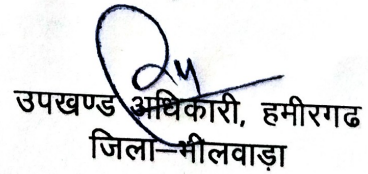 उपखण्ड अधिकारी, हमीरगढ
जिला–भीलवाड़ा